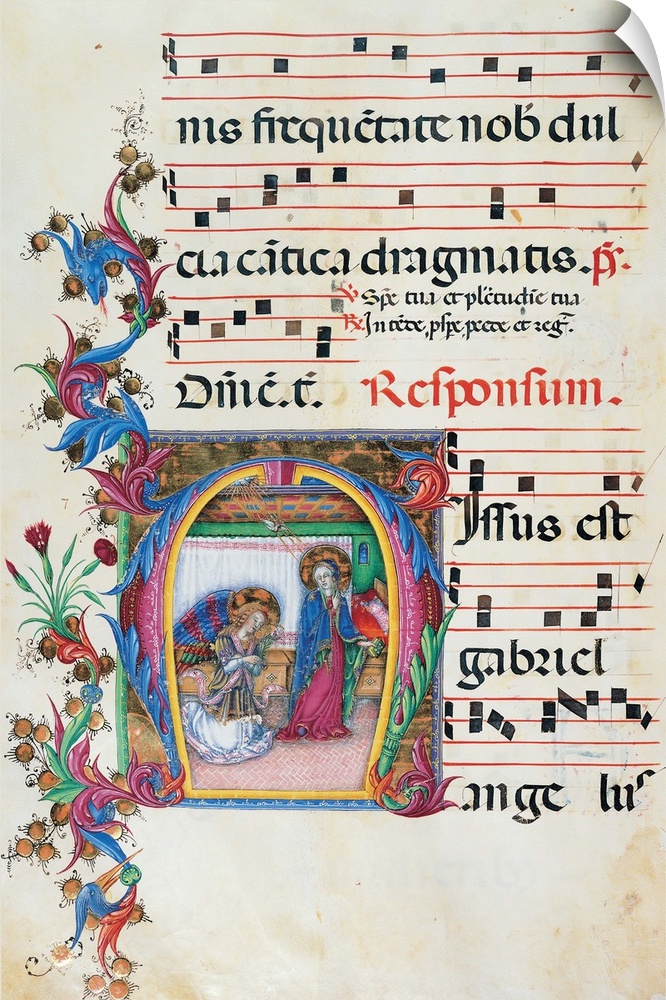 nis frequētate nob dul
cia cātica dragmatis. p̄s.
℣ Spē tua et plc̄tudīe tua
℟ In tēde, pspe, pcede et reg̃.
Dn̄ic̄. t̄. Responsum.
Missus est
gabriel
ange lus
7